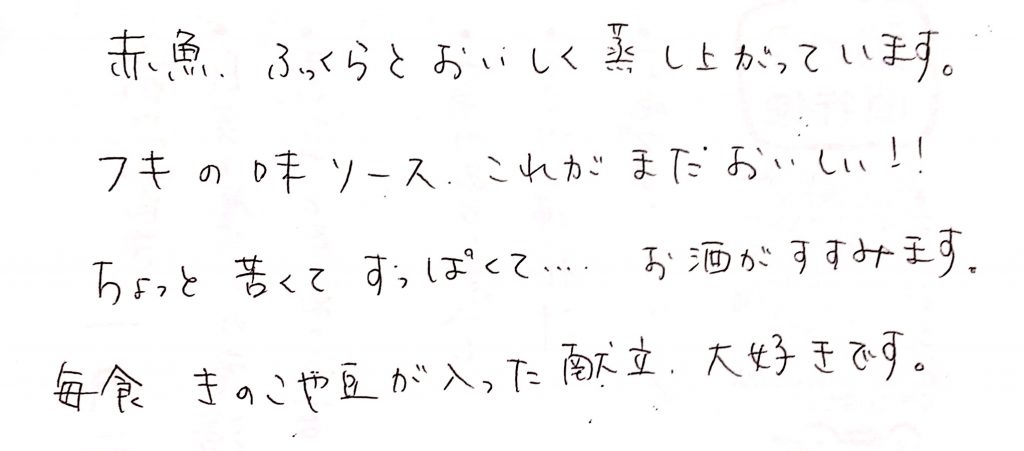 赤魚、ふっくらとおいしく蒸し上がっています。
フキの味ソース、これがまだおいしい!!
ちょっと苦くてすっぱくて.... お酒がすすみます。
毎食 きのこや豆が入った献立、大好きです。